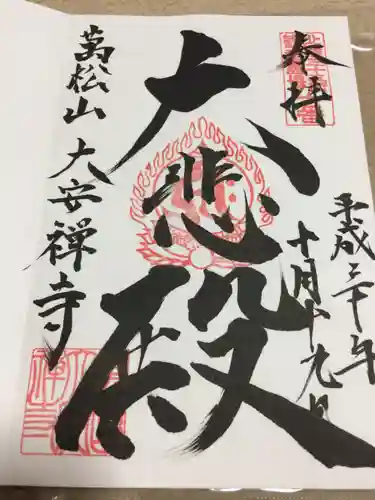 奉拝
平成三十年
十月十九日
大悲殿
萬松山大安禅寺